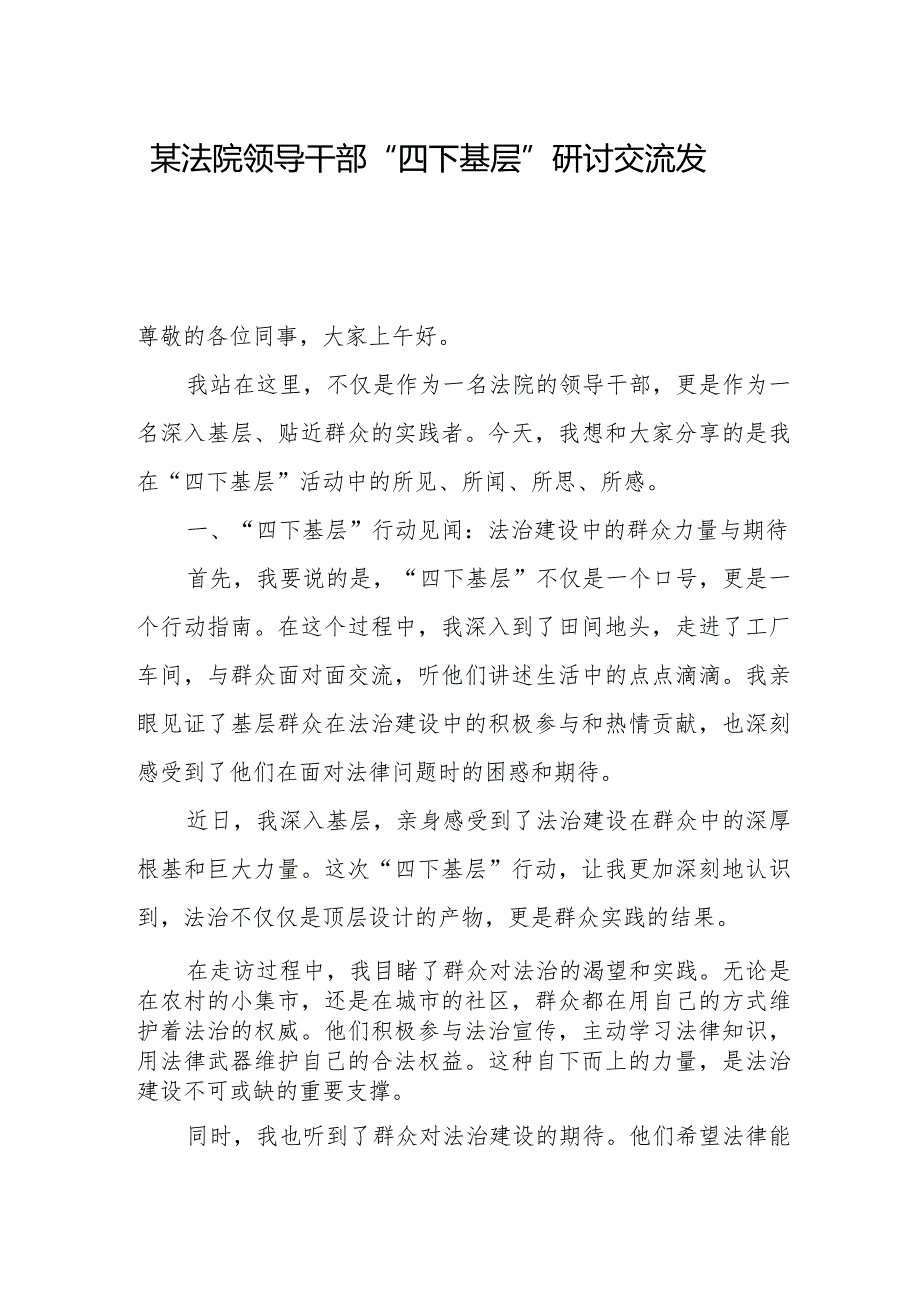 某法院领导干部“四下基层”研讨交流发
尊敬的各位同事，大家上午好。
我站在这里，不仅是作为一名法院的领导干部，更是作为一
名深入基层、贴近群众的实践者。今天，我想和大家分享的是我
在“四下基层”活动中的所见、所闻、所思、所感。
一、“四下基层”行动见闻：法治建设中的群众力量与期待
首先，我要说的是，“四下基层”不仅是一个口号，更是一
个行动指南。在这个过程中，我深入到了田间地头，走进了工厂
车间，与群众面对面交流，听他们讲述生活中的点点滴滴。我亲
眼见证了基层群众在法治建设中的积极参与和热情贡献，也深刻
感受到了他们在面对法律问题时的困惑和期待。
近日，我深入基层，亲身感受到了法治建设在群众中的深厚
根基和巨大力量。这次“四下基层”行动，让我更加深刻地认识
到，法治不仅仅是顶层设计的产物，更是群众实践的结果。
在走访过程中，我目睹了群众对法治的渴望和实践。无论是
在农村的小集市，还是在城市的社区，群众都在用自己的方式维
护着法治的权威。他们积极参与法治宣传，主动学习法律知识，
用法律武器维护自己的合法权益。这种自下而上的力量，是法治
建设不可或缺的重要支撑。
同时，我也听到了群众对法治建设的期待。他们希望法律能